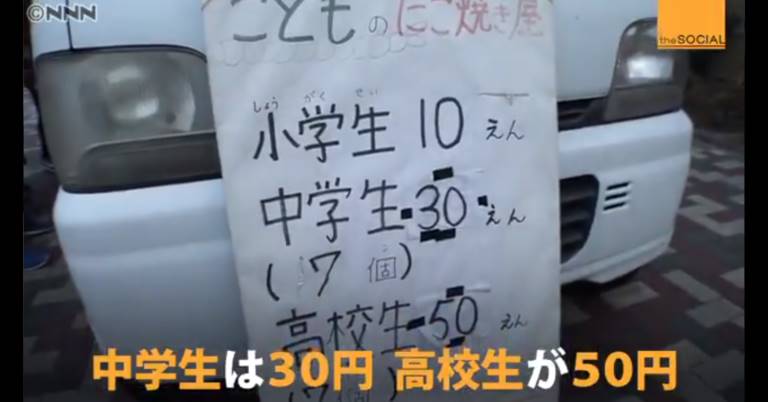 ©NNN
the SOCIAL
こどものたこ焼き屋
しょうがくせい
小学生 10 えん
中学生 30 えん
(7個)
高校生 50 えん
(7個)
中学生は30円 高校生が50円